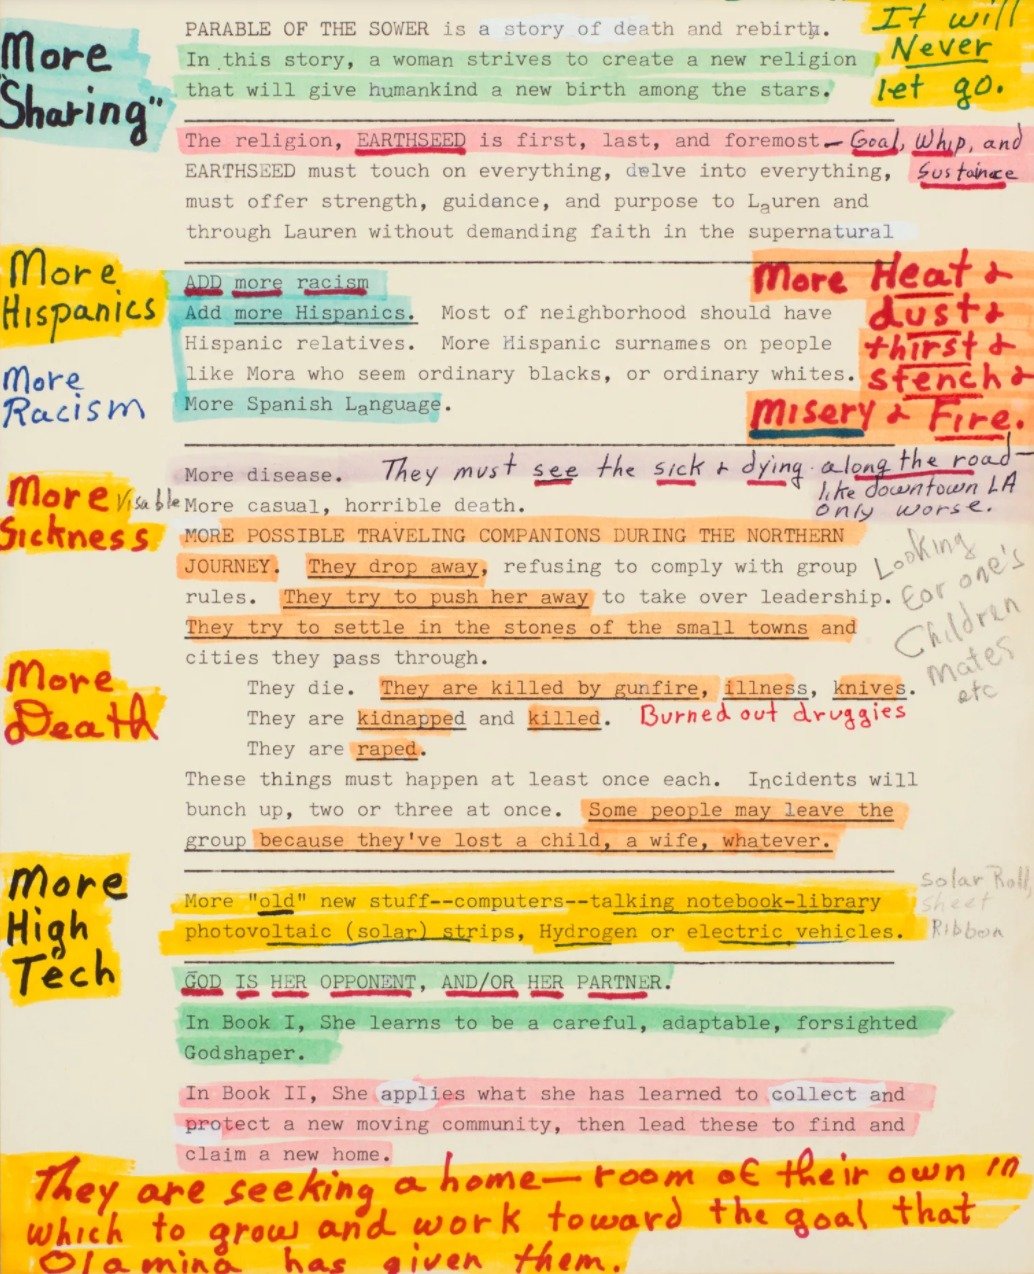 It will
Never
let go.
More
"Sharing"
PARABLE OF THE SOWER is a story of death and rebirth.
In this story, a woman strives to create a new religion
that will give humankind a new birth among the stars.
The religion, EARTHSEED is first, last, and foremost— Goal, Whip, and
Sustaince
EARTHSEED must touch on everything, delve into everything,
must offer strength, guidance, and purpose to Lauren and
through Lauren without demanding faith in the supernatural
More
Hispanics
More
Racism
ADD more racism
Add more Hispanics. Most of neighborhood should have
Hispanic relatives. More Hispanic surnames on people
like Mora who seem ordinary blacks, or ordinary whites.
More Spanish Language.
More Heat &
dust &
thirst &
stench &
Misery & Fire.
More
Sickness
More disease. They must see the sick & dying along the road—
like downtown LA
only worse.
Visable
More casual, horrible death.
MORE POSSIBLE TRAVELING COMPANIONS DURING THE NORTHERN
JOURNEY. They drop away, refusing to comply with group
rules. They try to push her away to take over leadership.
They try to settle in the stones of the small towns and
cities they pass through.
Looking
for one's
Children
mates
etc
More
Death
They die. They are killed by gunfire, illness, knives.
They are kidnapped and killed. Burned out druggies
They are raped.
These things must happen at least once each. Incidents will
bunch up, two or three at once. Some people may leave the
group because they've lost a child, a wife, whatever.
More
High
Tech
More "old" new stuff--computers--talking notebook-library
photovoltaic (solar) strips, Hydrogen or electric vehicles.
solar Roll
sheet
Ribbon
GOD IS HER OPPONENT, AND/OR HER PARTNER.
In Book I, She learns to be a careful, adaptable, forsighted
Godshaper.
In Book II, She applies what she has learned to collect and
protect a new moving community, then lead these to find and
claim a new home.
They are seeking a home—room of their own in
which to grow and work toward the goal that
Olamina has given them.